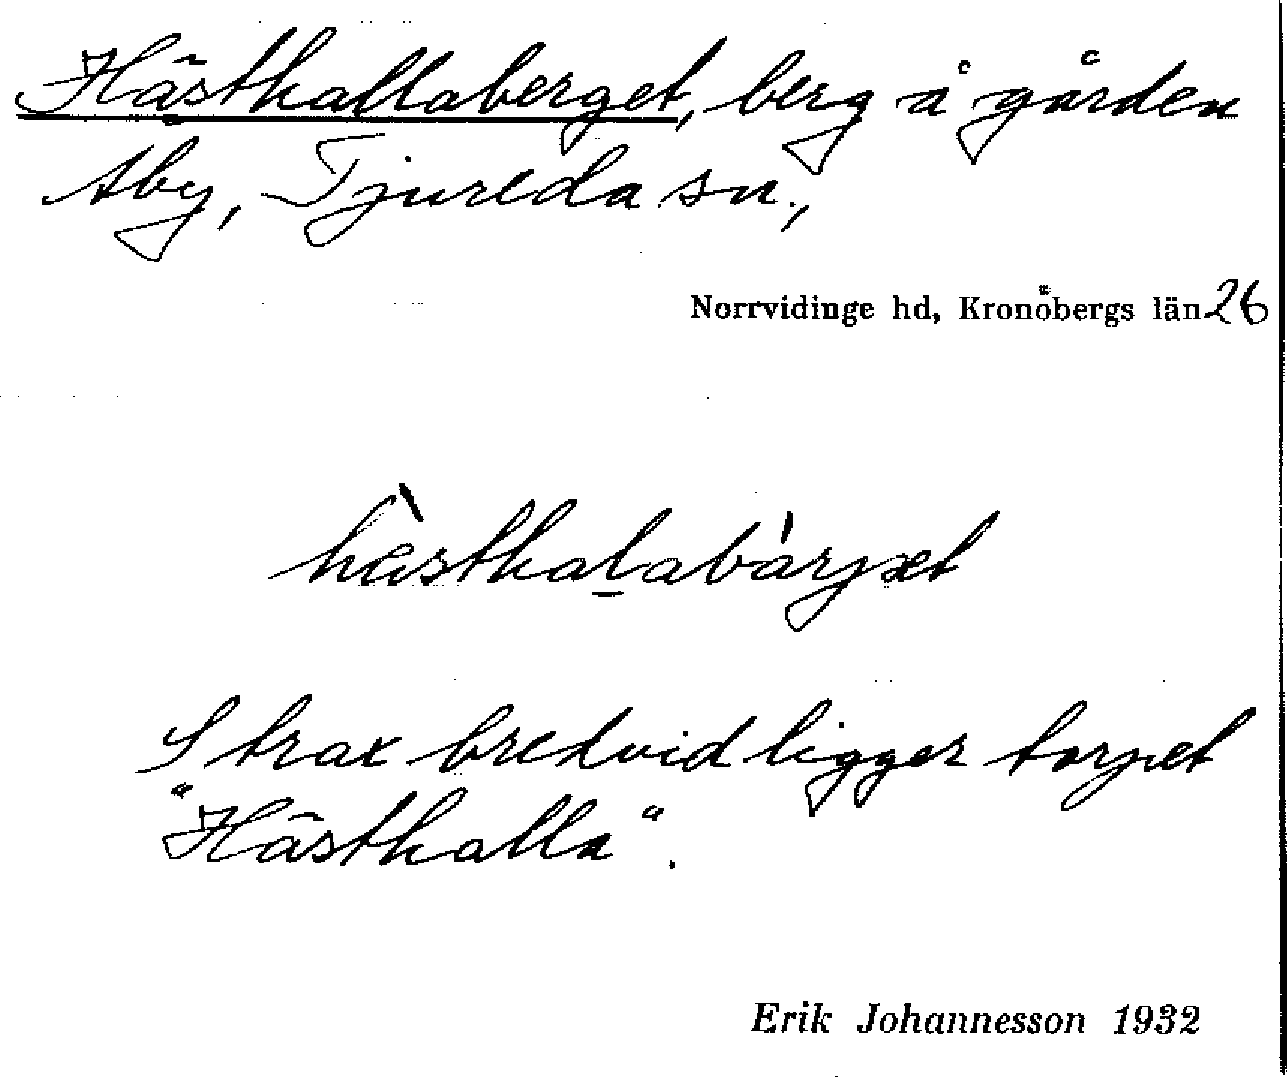 Hästhallaberget, berg å gården
Åby, Tjureda sn.,
Norrvidinge hd, Kronobergs län 26
hà̈sthalabárjet
Strax bredvid ligger torpet
"Hästhalla".
Erik Johannesson 1932